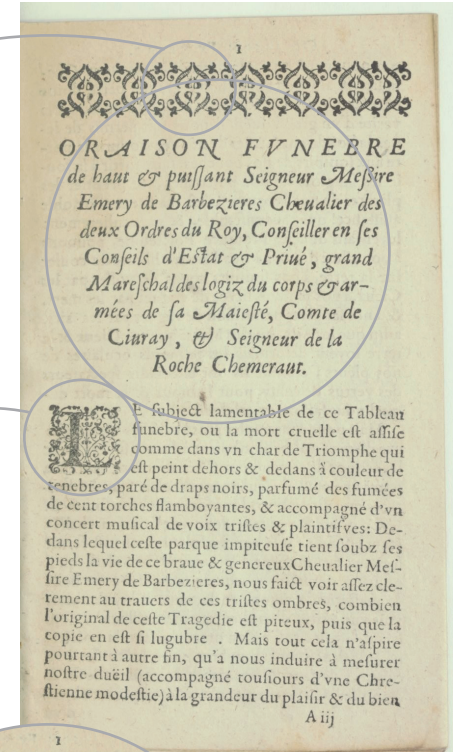 1
ORAISON FVNEBRE
de haut & puiſſant Seigneur Meſſire
Emery de Barbezieres Cheualier des
deux Ordres du Roy, Conſeiller en ſes
Conſeils d'Eſtat & Priué, grand
Mareſchal des logiz du corps & ar-
mées de ſa Maieſté, Comte de
Ciuray, & Seigneur de la
Roche Chemeraut.
LE ſubject lamentable de ce Tableau
funebre, ou la mort cruelle eſt aſſiſe
comme dans vn char de Triomphe qui
eſt peint dehors & dedans à couleur de
tenebres, paré de draps noirs, parfumé des fumées
de cent torches flamboyantes, & accompagné d'vn
concert muſical de voix triſtes & plaintifves: De-
dans lequel ceſte parque impiteuſe tient ſoubz ſes
pieds la vie de ce braue & genereux Cheualier Meſ-
ſire Emery de Barbezieres, nous faict voir aſſez cle-
rement au trauers de ces triſtes ombres, combien
l'original de ceſte Tragedie eſt piteux, puis que la
copie en eſt ſi lugubre . Mais tout cela n'aſpire
pourtant à autre fin, qu'a nous induire à meſurer
noſtre duëil (accompagné touſiours d'vne Chre-
ſtienne modeſtie) à la grandeur du plaiſir & du bien
A iij
1